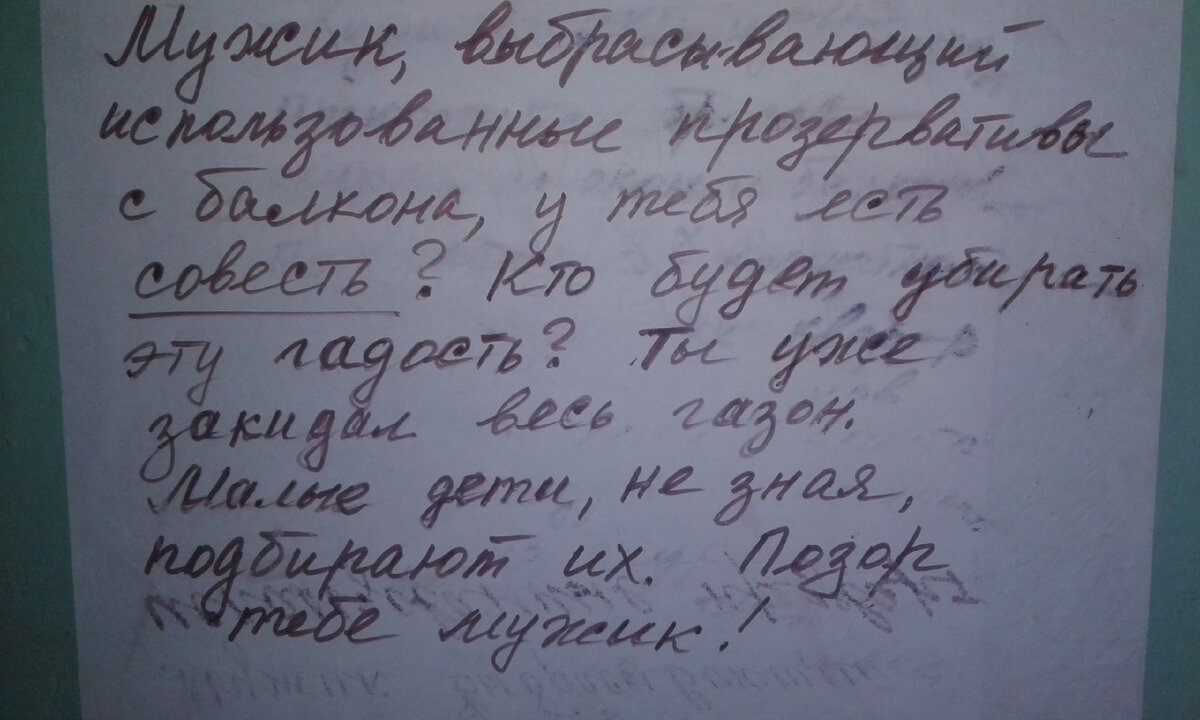 Мужик, выбрасывающий
использованные прозервативы
с балкона, у тебя есть
совесть? Кто будет убирать
эту гадость? Ты уже
закидал весь газон.
Малые дети, не зная,
подбирают их. Позор
тебе мужик!